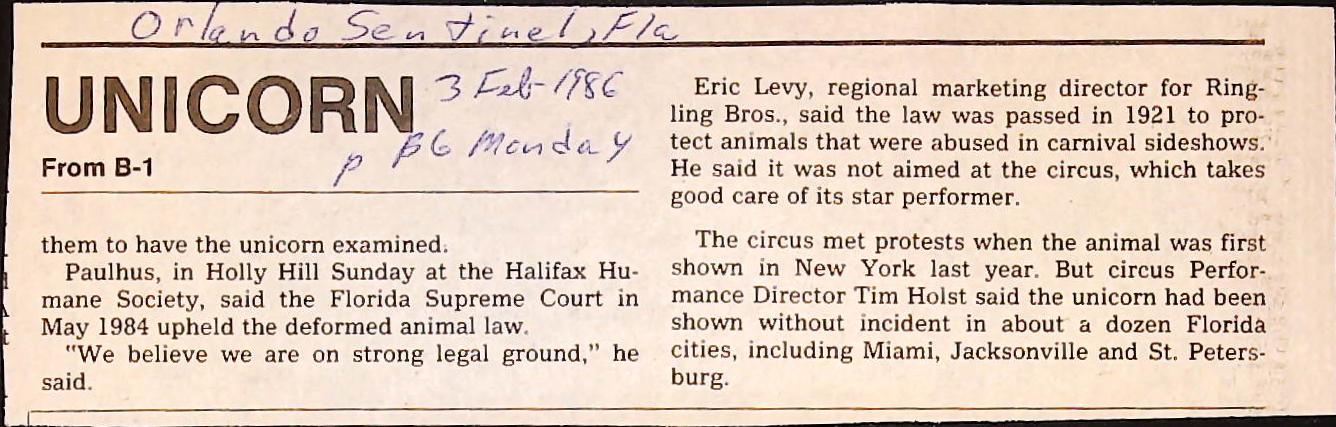 Orlando Sentinel, Fla
UNICORN
3 Feb-1986
p B6 Monday
From B-1
them to have the unicorn examined.
Paulhus, in Holly Hill Sunday at the Halifax Hu-
mane Society, said the Florida Supreme Court in
May 1984 upheld the deformed animal law.
"We believe we are on strong legal ground," he
said.
Eric Levy, regional marketing director for Ring-
ling Bros., said the law was passed in 1921 to pro-
tect animals that were abused in carnival sideshows.
He said it was not aimed at the circus, which takes
good care of its star performer.
The circus met protests when the animal was first
shown in New York last year. But circus Perfor-
mance Director Tim Holst said the unicorn had been
shown without incident in about a dozen Florida
cities, including Miami, Jacksonville and St. Peters-
burg.